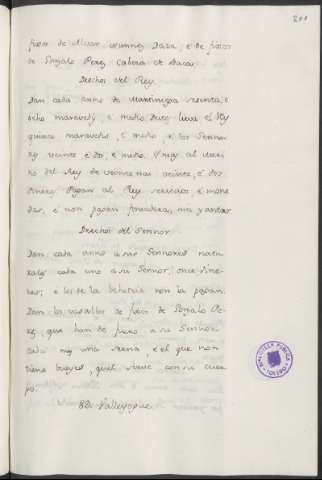 211
fijos de Alvar Nunnez Daza, e de fijos
de Gonzalo Perez
Derechos del Rey.
Dan cada anno de Martiniega sesenta, e
ocho maravedis, e medio
quince maravedis, e medio, e los Senno-
veinte e dos, e medio
no del Rey de veinte mrs veinte, e dos
dineros. Pagan al Rey servicios, e mone-
das, e non pagan fonsadera, nin yantar
Derechos del Sennor.
Dan cada anno a sus Sennores natu-
rales cada uno a su Sennor, once dine-
ros; e los de la behetria non la pagan.
Dan los vasallos de fijos de Gonzalo Pe-
rez, que han de fuero a su Sennor
cada una serna, e el que non
tiene bueyes, quel sirve con su cuer-
po.
BIBLIOTECA PUBLICA
TOLEDO